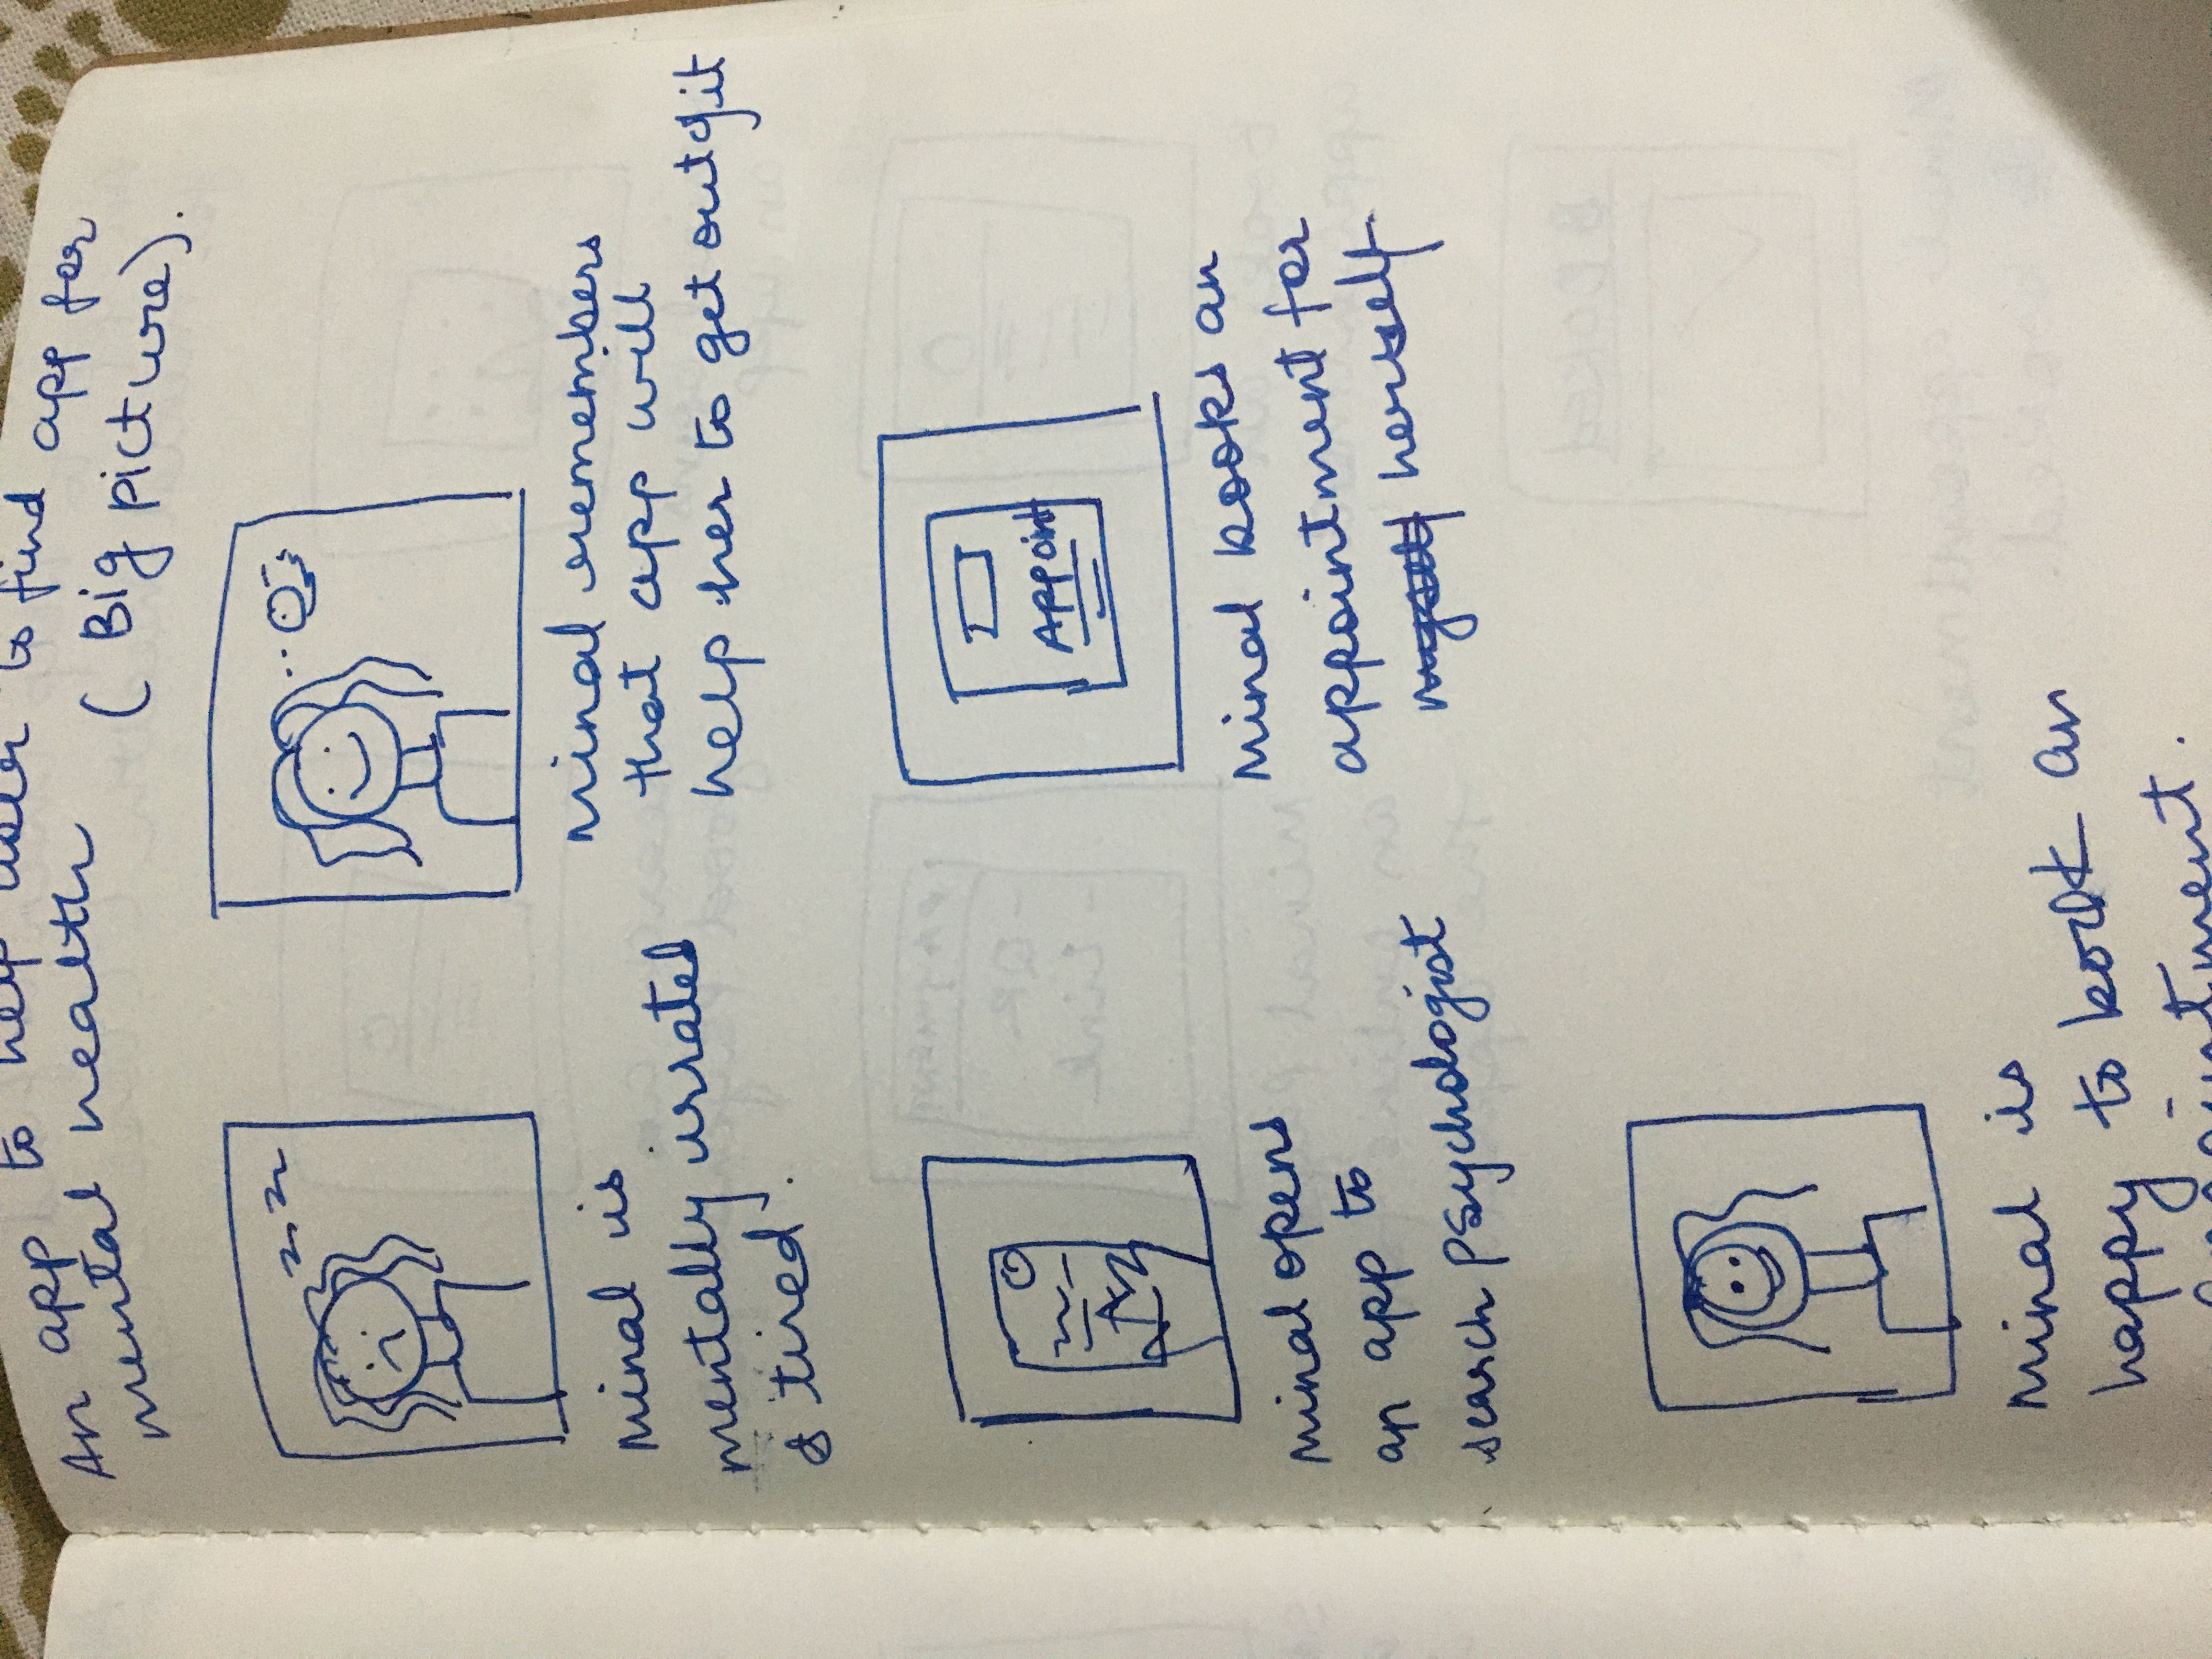 An app to help user to find app for
mental health (Big picture).
Minal is
mentally irrated
& tired.
Minal remembers
that app will
help her to get out of it
Appoint
Minal opens
an app to
search psychologist
Minal books an
appointment for
myself herself
Minal is
happy to book an
appointment.